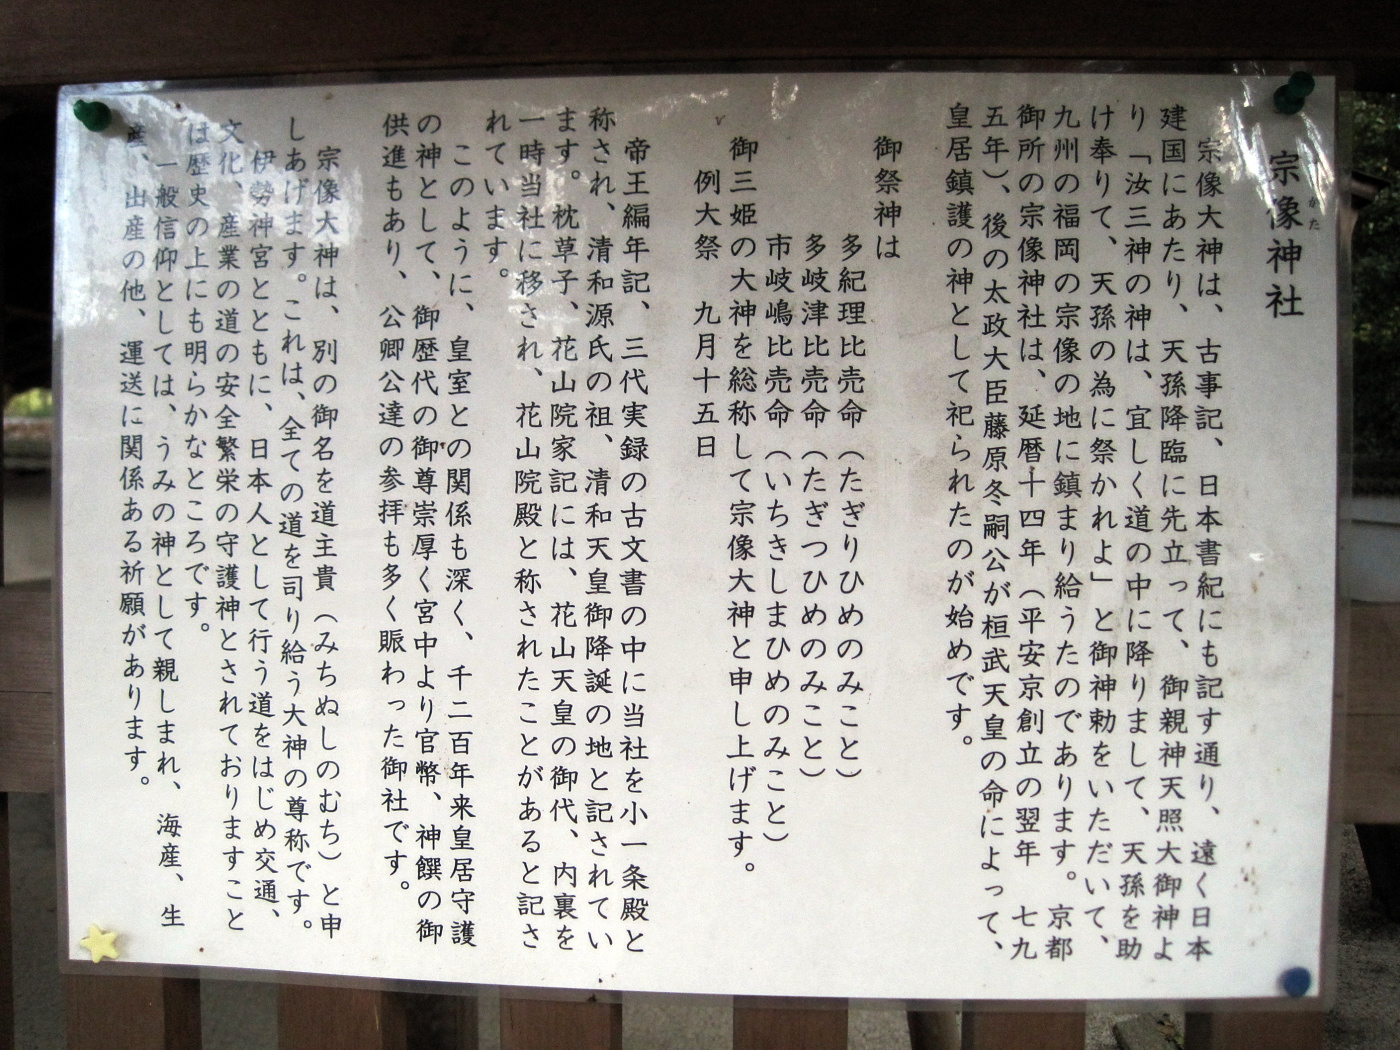 宗像神社
宗像大神は、古事記、日本書紀にも記す通り、遠く日本
建国にあたり、天孫降臨に先立って、御親神天照大御神よ
り「汝三神の神は、宜しく道の中に降りまして、天孫を助
け奉りて、天孫の為に祭かれよ」と御神勅をいただいて、
九州の福岡の宗像の地に鎮まり給うたのであります。京都
御所の宗像神社は、延暦十四年（平安京創立の翌年　七九
五年）、後の太政大臣藤原冬嗣公が桓武天皇の命によって、
皇居鎮護の神として祀られたのが始めです。
御祭神は
多紀理比売命（たぎりひめのみこと）
多岐津比売命（たぎつひめのみこと）
市岐嶋比売命（いちきしまひめのみこと）
御三姫の大神を総称して宗像大神と申し上げます。
例大祭　九月十五日
帝王編年記、三代実録の古文書の中に当社を小一条殿と
称され、清和源氏の祖、清和天皇御降誕の地と記されてい
ます。枕草子、花山院家記には、花山天皇の御代、内裏を
一時当社に移され、花山院殿と称されたことがあると記さ
れています。
このように、皇室との関係も深く、千二百年来皇居守護
の神として、御歴代の御尊崇厚く宮中より官幣、神饌の御
供進もあり、公卿公達の参拝も多く賑わった御社です。
宗像大神は、別の御名を道主貴（みちぬしのむち）と申
しあげます。これは、全ての道を司り給う大神の尊称です。
伊勢神宮とともに、日本人として行う道をはじめ交通、
文化、産業の道の安全繁栄の守護神とされておりますこと
は歴史の上にも明らかなところです。
一般信仰としては、うみの神として親しまれ、海産、生
産、出産の他、運送に関係ある祈願があります。